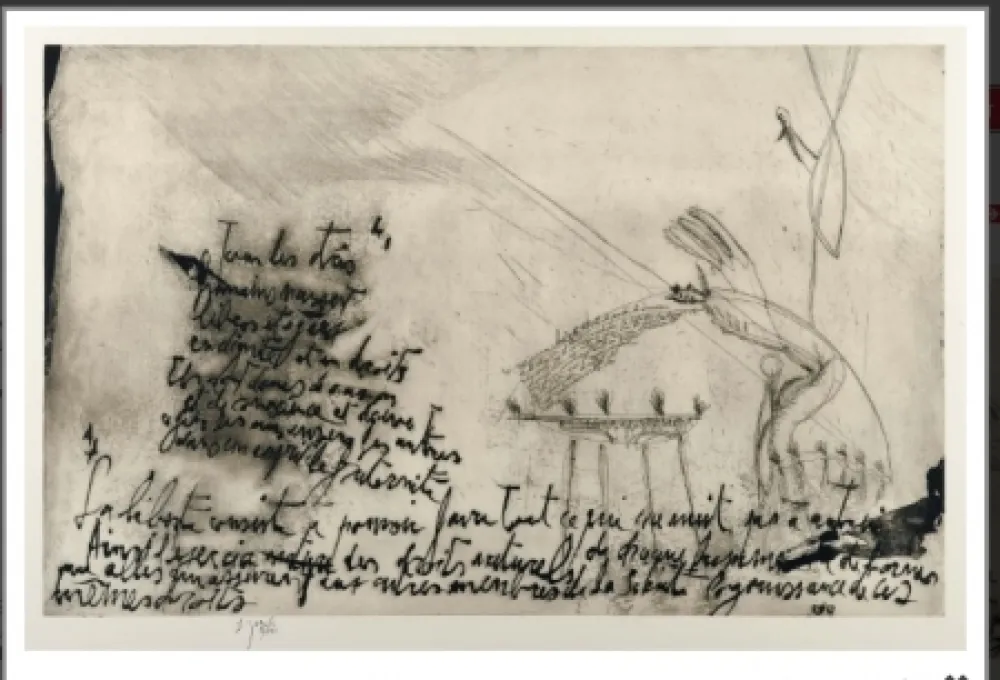 1,
Tous les êtres
humains naissent
libres et égaux
en dignité et en droits
Ils sont doués de raison
et de conscience et doivent
agir les uns envers les autres
dans un esprit de fraternité
4,
La liberté consiste à pouvoir faire tout ce qui ne nuit pas à autrui
Ainsi l'exercice des droits naturels de chaque homme a de bornes
que celles qui assurent aux autres membres de la société la jouissance de ces
mêmes droits